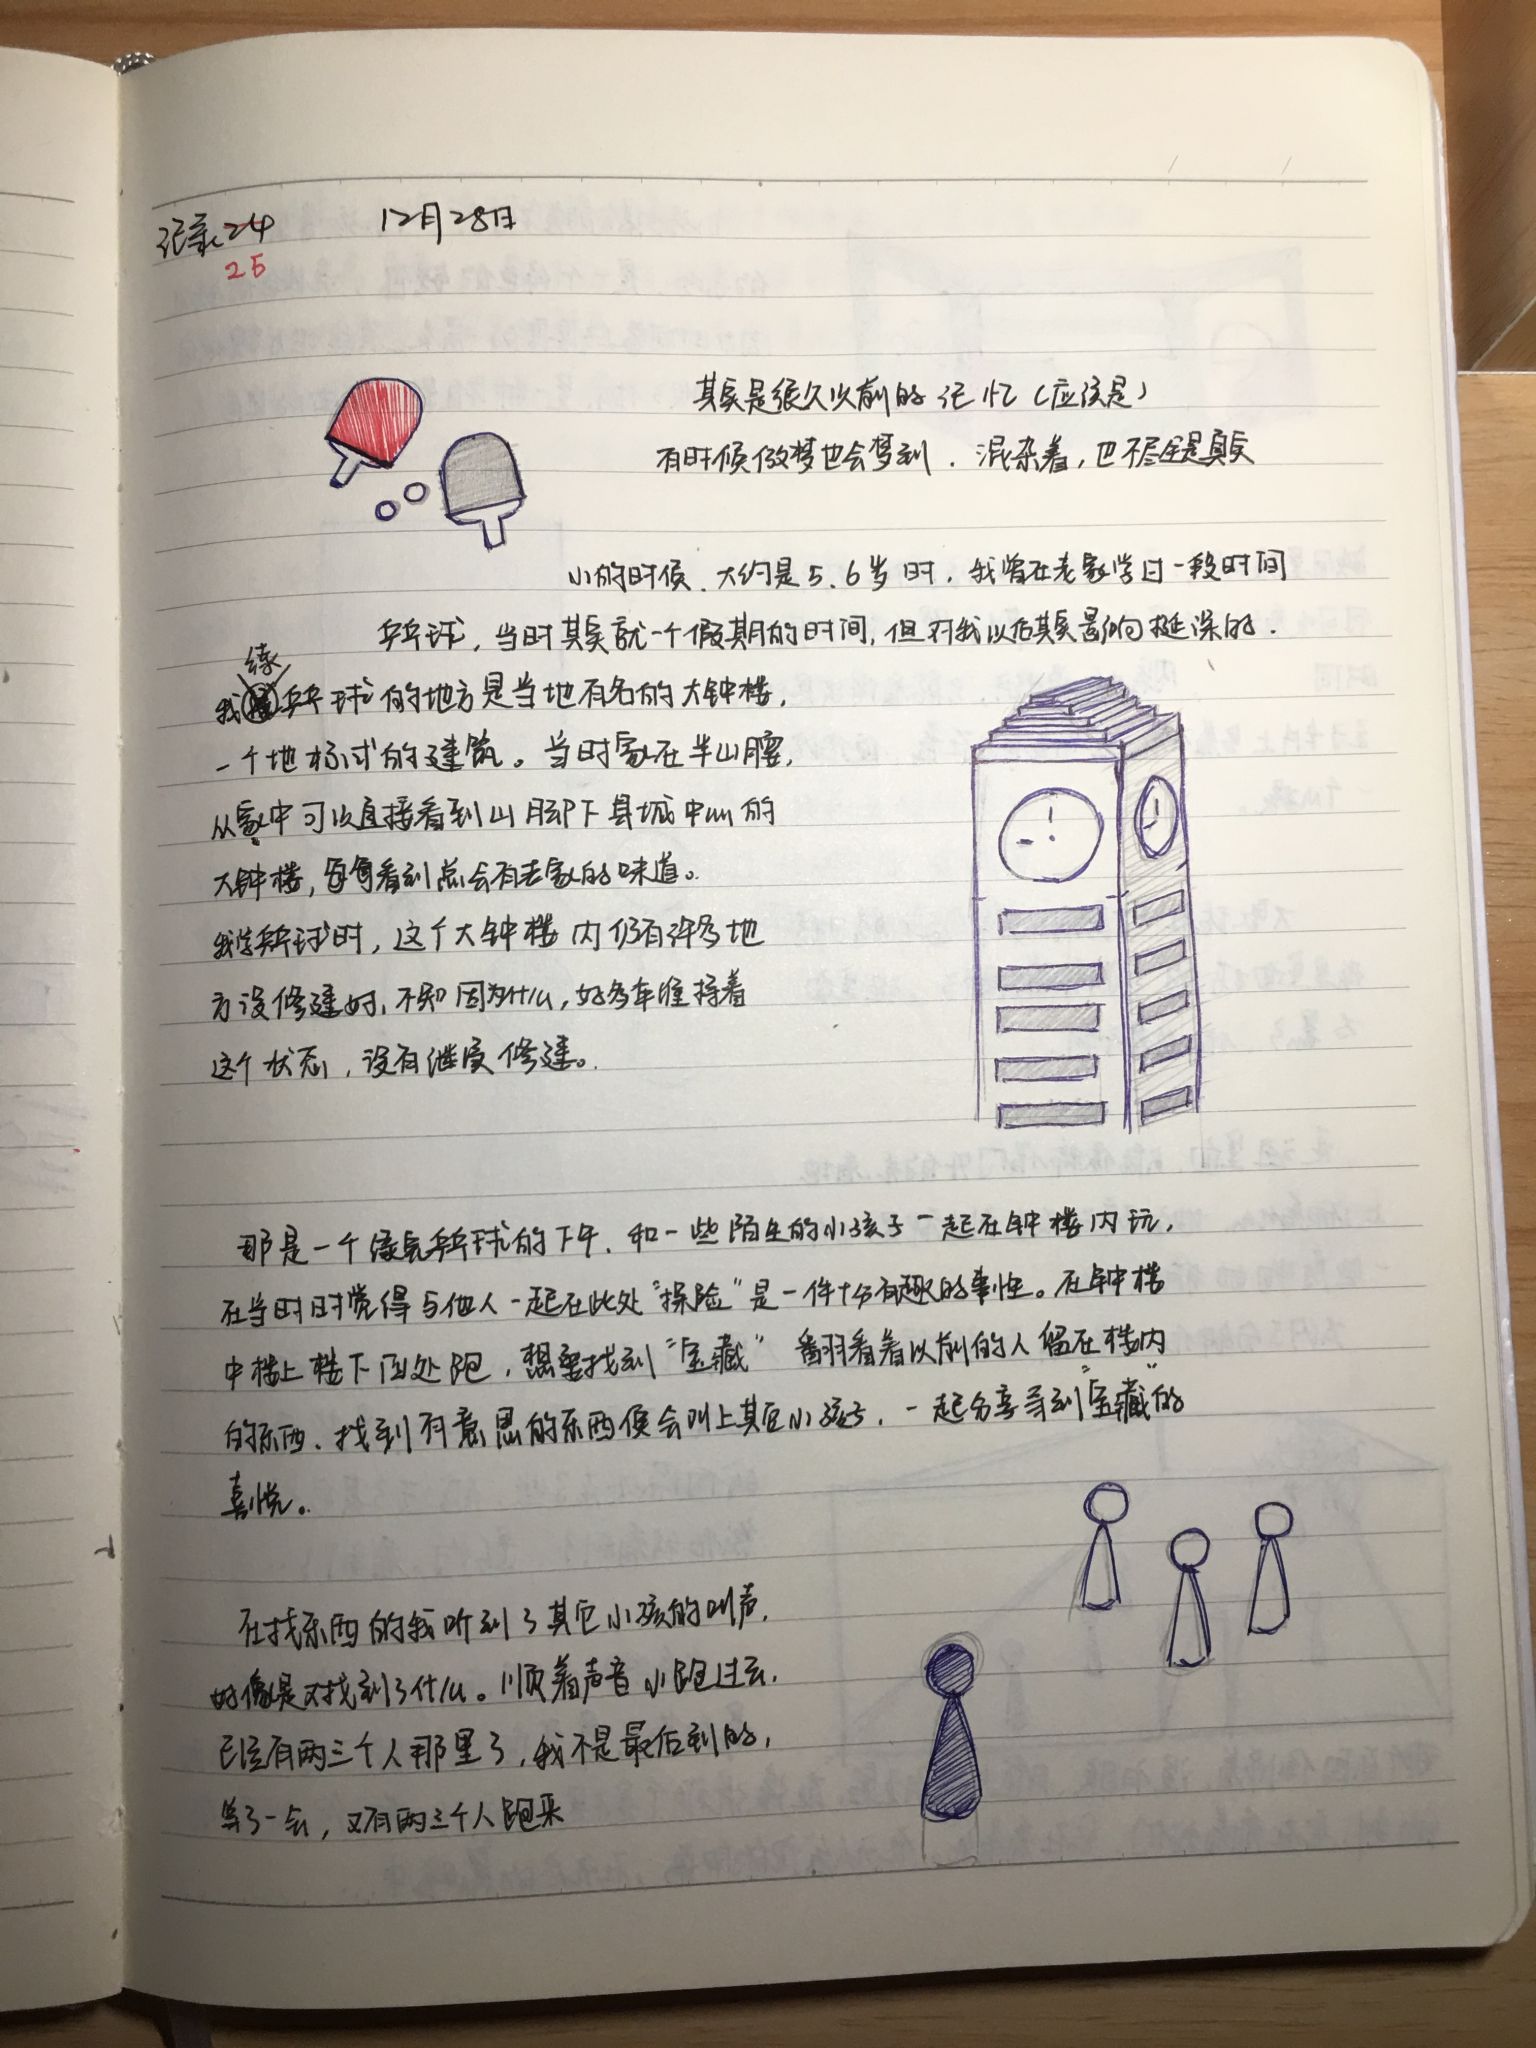 记录24 12月28日
25
其实是很久以前的记忆(应该是)
有时候做梦也会梦到.混杂着,也不尽全是真实
小的时候、大约是5、6岁时,我曾在老家学过一段时间
乒乓球,当时其实就一个假期的时间,但对我以后其实影响挺深的.
练
我乒乓球的地方是当地有名的大钟楼,
一个地标式的建筑。当时家在半山腰,
从家中可以直接看到山脚下县城中的
大钟楼,每每看到总会有老家的味道。
我学乒乓球时,这个大钟楼内仍有许多地
方没修建好,不知因为什么,好多年维持着
这个状态,没有继续修建。
那是一个练完乒乓球的下午、和一些陌生的小孩子一起在钟楼内玩,
在当时时觉得与他人一起在此处“探险”是一件十分有趣的事情。在钟楼
中楼上楼下四处跑,想要找到“宝藏” 翻看着以前的人留在楼内
的东西、找到有意思的东西便会叫上其它小孩子,一起分享寻到“宝藏”的
喜悦。
在找东西的我听到了其它小孩的叫声,
好像是又找到了什么。顺着声音小跑过去,
已经有两三个人那里了,我不是最后到的,
等了一会,又有两三个人跑来